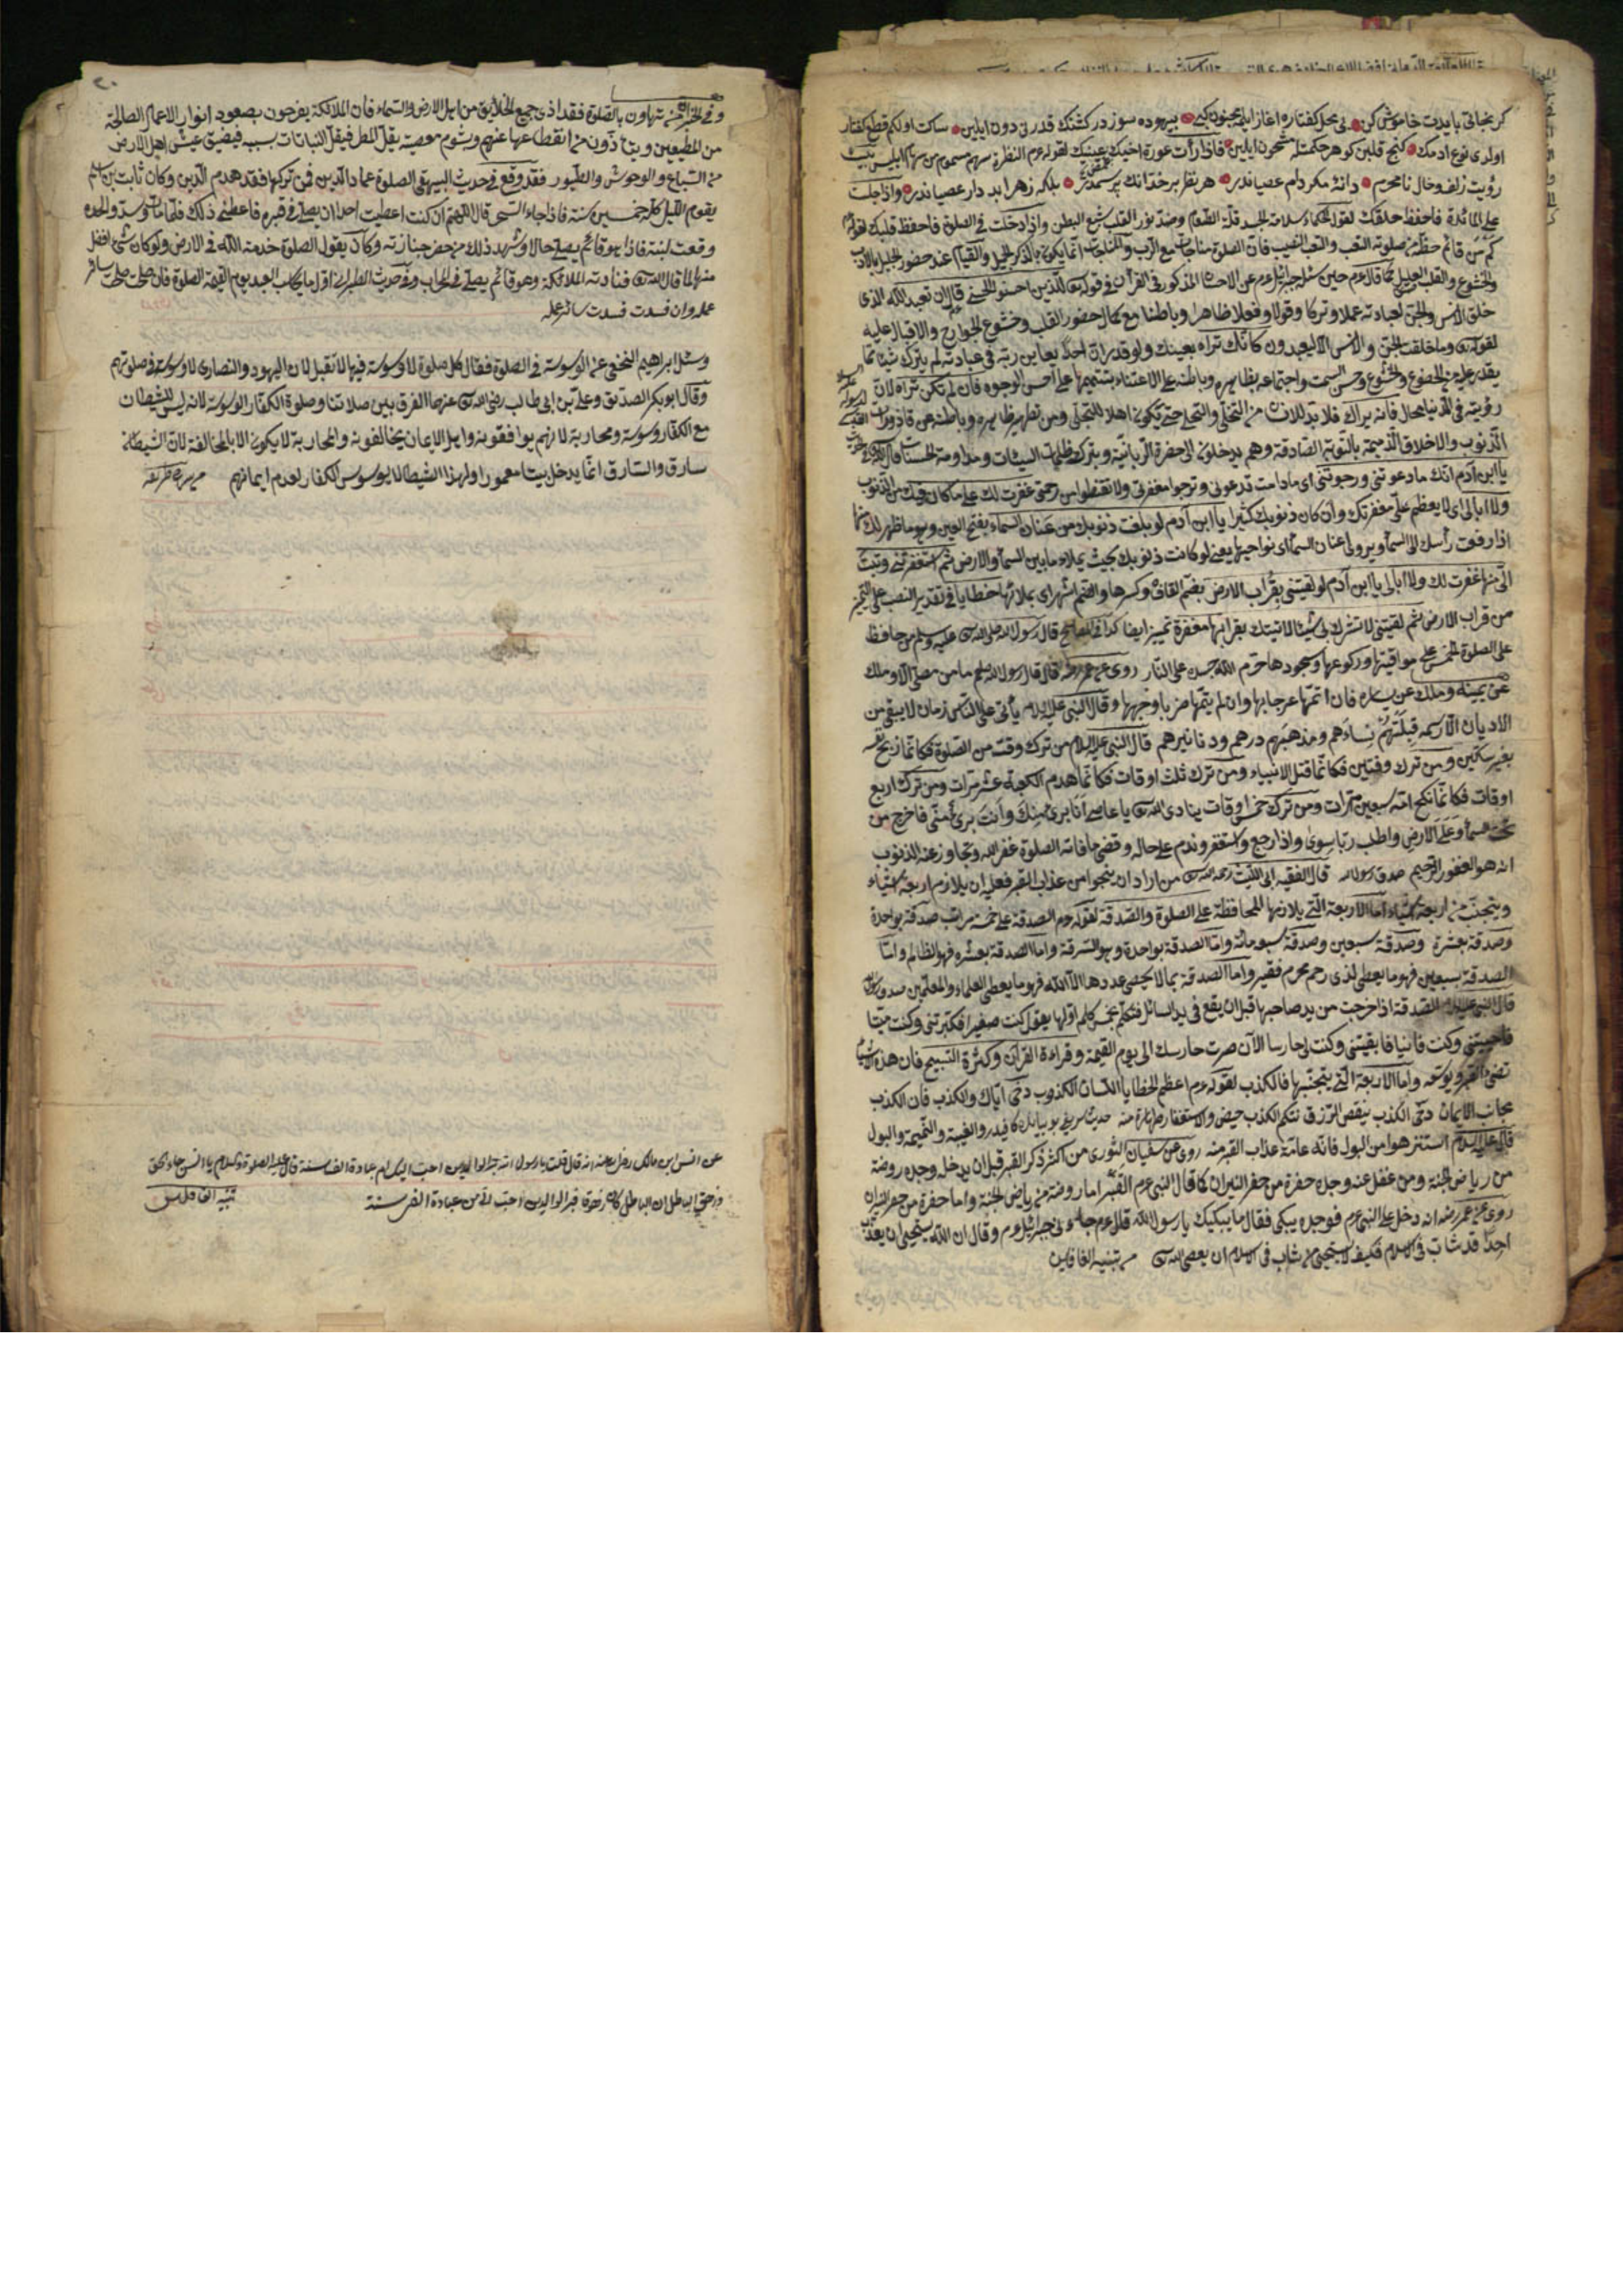 كر نجاتى بايدت خاموش كن فى محل كفتاره اغاز ايلمه مجنون كبى بيهوده سوزدر كشنك قدرنى دون ايلين ساكت اولكم قطع كفتار
اولدى نوع ادمك كنج قلبن كوهر حكمتله مشحون ايلين فاذا رأت عورة اخيك عينيك لقوله عم النظرة سهم مسموم من سهام ابليس بيت
رؤيت زلف وخال نامحرم دانۀ مكر دام عصياندر هر نظر بر خدانك پرسمدر بلكه زهر ابدار عصياندر واذا جلت
على المائدة فاحفظ حلقك لقول الحكماء سلامة الجسد قلة الطعام وضد نور القلب شبع البطن واذا دخلت فى الصلوة فاحفظ قلبك لقوله عم
كم من قائم حظه من صلوته التعب والنصب فان الصلوة مناجات مع الرب والمناجات انما يكون بالذكر الجميل والقيام عند حضور الجليل بالادب
والخشوع والقلب كما قال عم حين سئل جبرائيل عم عن الاحسان المذكور فى القرآن فى قوله تعالى للذين احسنوا الحسنى قال ان تعبد الله الذى
خلق الانس والجن لعبادته عملا وتركا وقولا وفعلا ظاهرا وباطنا مع كمال حضور القلب وخشوع الجوارح والاقبال عليه
لقوله تعالى وما خلقت الجن والانس الا ليعبدون كانك تراه بعينك ولو قدر ان احدا يعاين ربه فى عبادته لم يترك شيئا مما
يقدر عليه من الخضوع والخشوع وحسن السمت واجتماعه بظاهره وباطنه على الاعتناء بتتميمها على احسن الوجوه فان لم تكن تراه لان
رؤيته فى الدنيا محال فانه يراك فلا بد للانسان من التخلى والتحلى حتى يكون اهلا للتجلى ومن تطهير ظاهره وباطنه عن قاذورات
الذنوب والاخلاق الذميمة بالتوبة الصادقة وهم يدخلون الى الحضرة الربانية وبترك ظلمات السيئات ومداومة الحسنات قال
يا ابن آدم انك ما دعوتنى ورجوتنى اى ما دامت تدعونى وترجوا مغفرتى ولا تقنطوا من رحمتى غفرت لك على ما كان فيك من الذنوب
ولا ابالى اى لا يعظم على مغفرتك وان كان ذنوبك كثيرا يا ابن آدم لو بلغت ذنوبك من عنان السماء بفتح العين وهو ما ظهر لك منها
اذا رفعت رأسك الى السماء ويروى اعنان السماء اى نواحيها يعنى لو كانت ذنوبك بحيث يملاء ما بين السماء والارض ثم استغفرتنى وتبت
الى منها غفرت لك ولا ابالى يا ابن آدم لو لقيتنى بقراب الارض بضم القاف وكسرها والضم اشهر اى بملائها خطايا فى تقدير النصب على التميز
من قراب الارض ثم لقيتنى لا تشرك بى شيئا لاتيتك بقرابها مغفرة تميز ايضا كذا فى المصابيح قال رسول الله صلى الله تعالى عليه وسلم من حافظ
على الصلوة الخمس على مواقيتها وركوعها وسجودها حرم الله جسده على النار روى عن عمر رضه قال قال رسول الله صلعم ما من مصلى الا وملك
عن يمينه وملك عن يساره فان اتمها عرجا بها وان لم يتمها ضربا وجهها وقال النبى عليه السلام يأتى على الناس زمان لا يبقى من
الاديان الا رسمه قبلتهم نساءهم ومذهبهم درهم ودنانيرهم قال النبى عليه السلام من ترك وقت من الصلوة فكانما ذبح نفسه
بغير سكين ومن ترك وقتين فكانما قتل الانبياء ومن ترك ثلث اوقات فكانما هدم الكعبة عشر مرات ومن ترك اربع
اوقات فكانما نكح امه سبعين مرات ومن ترك خمس اوقات ينادى الله تعالى يا عاصى انا برئ منك وانت برئ منى فاخرج من
تحت سمائى وعلى الارض واطلب ربا سوائى واذا رجع واستغفر وندم على حاله وقضى ما فاته الصلوة غفر الله وتجاوز عنه الذنوب
انه هو الغفور الرحيم صدق رسول الله قال الفقيه ابى الليث رحمه الله تعالى من اراد ان ينجوا من عذاب القبر فعليه ان يلازم اربعة اشياء
ويتجنب من اربعة اشياء اما الاربعة التى يلازمها المحافظة على الصلوة والصدقة لقوله عم الصدقة على خمسة مراتب صدقة بواحدة
وصدقة بعشرة وصدقة سبعين وصدقة سبعمائة واما الصدقة بواحدة وهو السرقة واما الصدقة بعشره فهو الظالم واما
الصدقة سبعين فهو ما يعطى لذى رحم محرم فقير واما الصدقة بما لا يحصى عددها الا الله فهو ما يعطى العلماء والمعلمين صدق رسول الله
قال النبى عليه السلام الصدقة اذا خرجت من يد صاحبها قبل ان يقع فى يد السائل فتكلم بخمس كلم اولها يقول كنت صغيرا فكبرتنى وكنت ميتا
فاحييتنى وكنت فانيا فابقيتنى وكنت لى حارسا الآن صرت حارسك الى يوم القيمة وقراءة القرآن وكثرة التسبيح فان هذه الاشياء
تضئ القبر ويوسعه واما الاربعة التى يتجنبها فالكذب لقوله عم اعظم الخطايا اللسان الكذوب دخى اياك والكذب فان الكذب
مجانب الايمان دخى الكذب ينقص الرزق نتكم الكذب حيض والاستغفار طهارة منه والغيبة والنميمة والبول
قال عليه السلام استنزهوا من البول فانه عامة عذاب القبر منه روى عن سفيان الثورى من اكثر ذكر القبر قبل ان يدخل وجده روضة
من رياض الجنة ومن غفل عنه وجده حفرة من حفر النيران كما قال النبى عم القبر اما روضة من رياض الجنة واما حفرة من حفر النيران
روى عن عمر رضه انه دخل على النبى عم فوجده يبكى فقال ما يبكيك يا رسول الله قال عم جاءنى جبرائيل عم وقال ان الله يستحيى ان يعذب
احدا قد شاب فى الاسلام فكيف لا يستحيى من شاب فى الاسلام ان يعصى الله تعالى من تنبيه الغافلين
وفى الخبر من تهاون بالصلوة فقد اذى جميع الخلايق من اهل الارض والسماء فان الملائكة يفرحون بصعود انوار الاعمال الصالحة
من المطيعين ويتأذون من انقطاعها عنهم وبشوم معصيته يقل المطر فيقل النباتات بسببه فيضيق عيش اهل الارض
من السباع والوحوش والطيور فقد وقع فى حديث البيهقى الصلوة عماد الدين فمن تركها فقد هدم الدين وكان ثابت بن اسلم
يقوم الليل كله خمسين سنة فاذا جاء السحر قال اللهم ان كنت اعطيت احدا ان يصلى فى قبره فاعطنى ذلك فلما مات وسد والحده
وقعت لبنة فاذا هو قائم يصلى حالا وشهد ذلك من حضر جنازته وكان يقول الصلوة خدمة الله فى الارض ولو كان شئ افضل
منها لما قال الله تعالى فنادته الملائكة وهو قائم يصلى فى المحراب وفى حديث الطبرانى اول ما يحاسب العبد يوم القيمة الصلوة فان صلحت صلحت سائر
عمله وان فسدت فسدت سائر عمله
وسئل ابراهيم النخعى عن الوسوسة فى الصلوة فقال كل صلوة لا وسوسة فيها لا تقبل لان اليهود والنصارى لا وسوسة فى صلوتهم
وقال ابو بكر الصديق وعلى بن ابى طالب رضى الله تعالى عنهما الفرق بين صلاتنا وصلوة الكفار الوسوسة لانه ليس للشيطان
مع الكفار وسوسة ومحاربة لانهم يوافقونه واهل الايمان يخالفونه والمحاربة لا يكون الا بالمخالفة لان الشيطان
سارق والسارق انما يدخل بيت معمور اولهذا الشيطان لا يوسوس الكفار لعدم ايمانهم
عن انس ابن مالك رضى الله عنه انه قال قلت يا رسول الله بر الوالدين احب اليك ام عبادة الف سنة قال عليه الصلوة والسلام يا انس جاء الحق
وزهق الباطل ان الباطل كان زهوقا فبر الوالدين احب لله من عبادة الف سنة تنبيه الغافلين